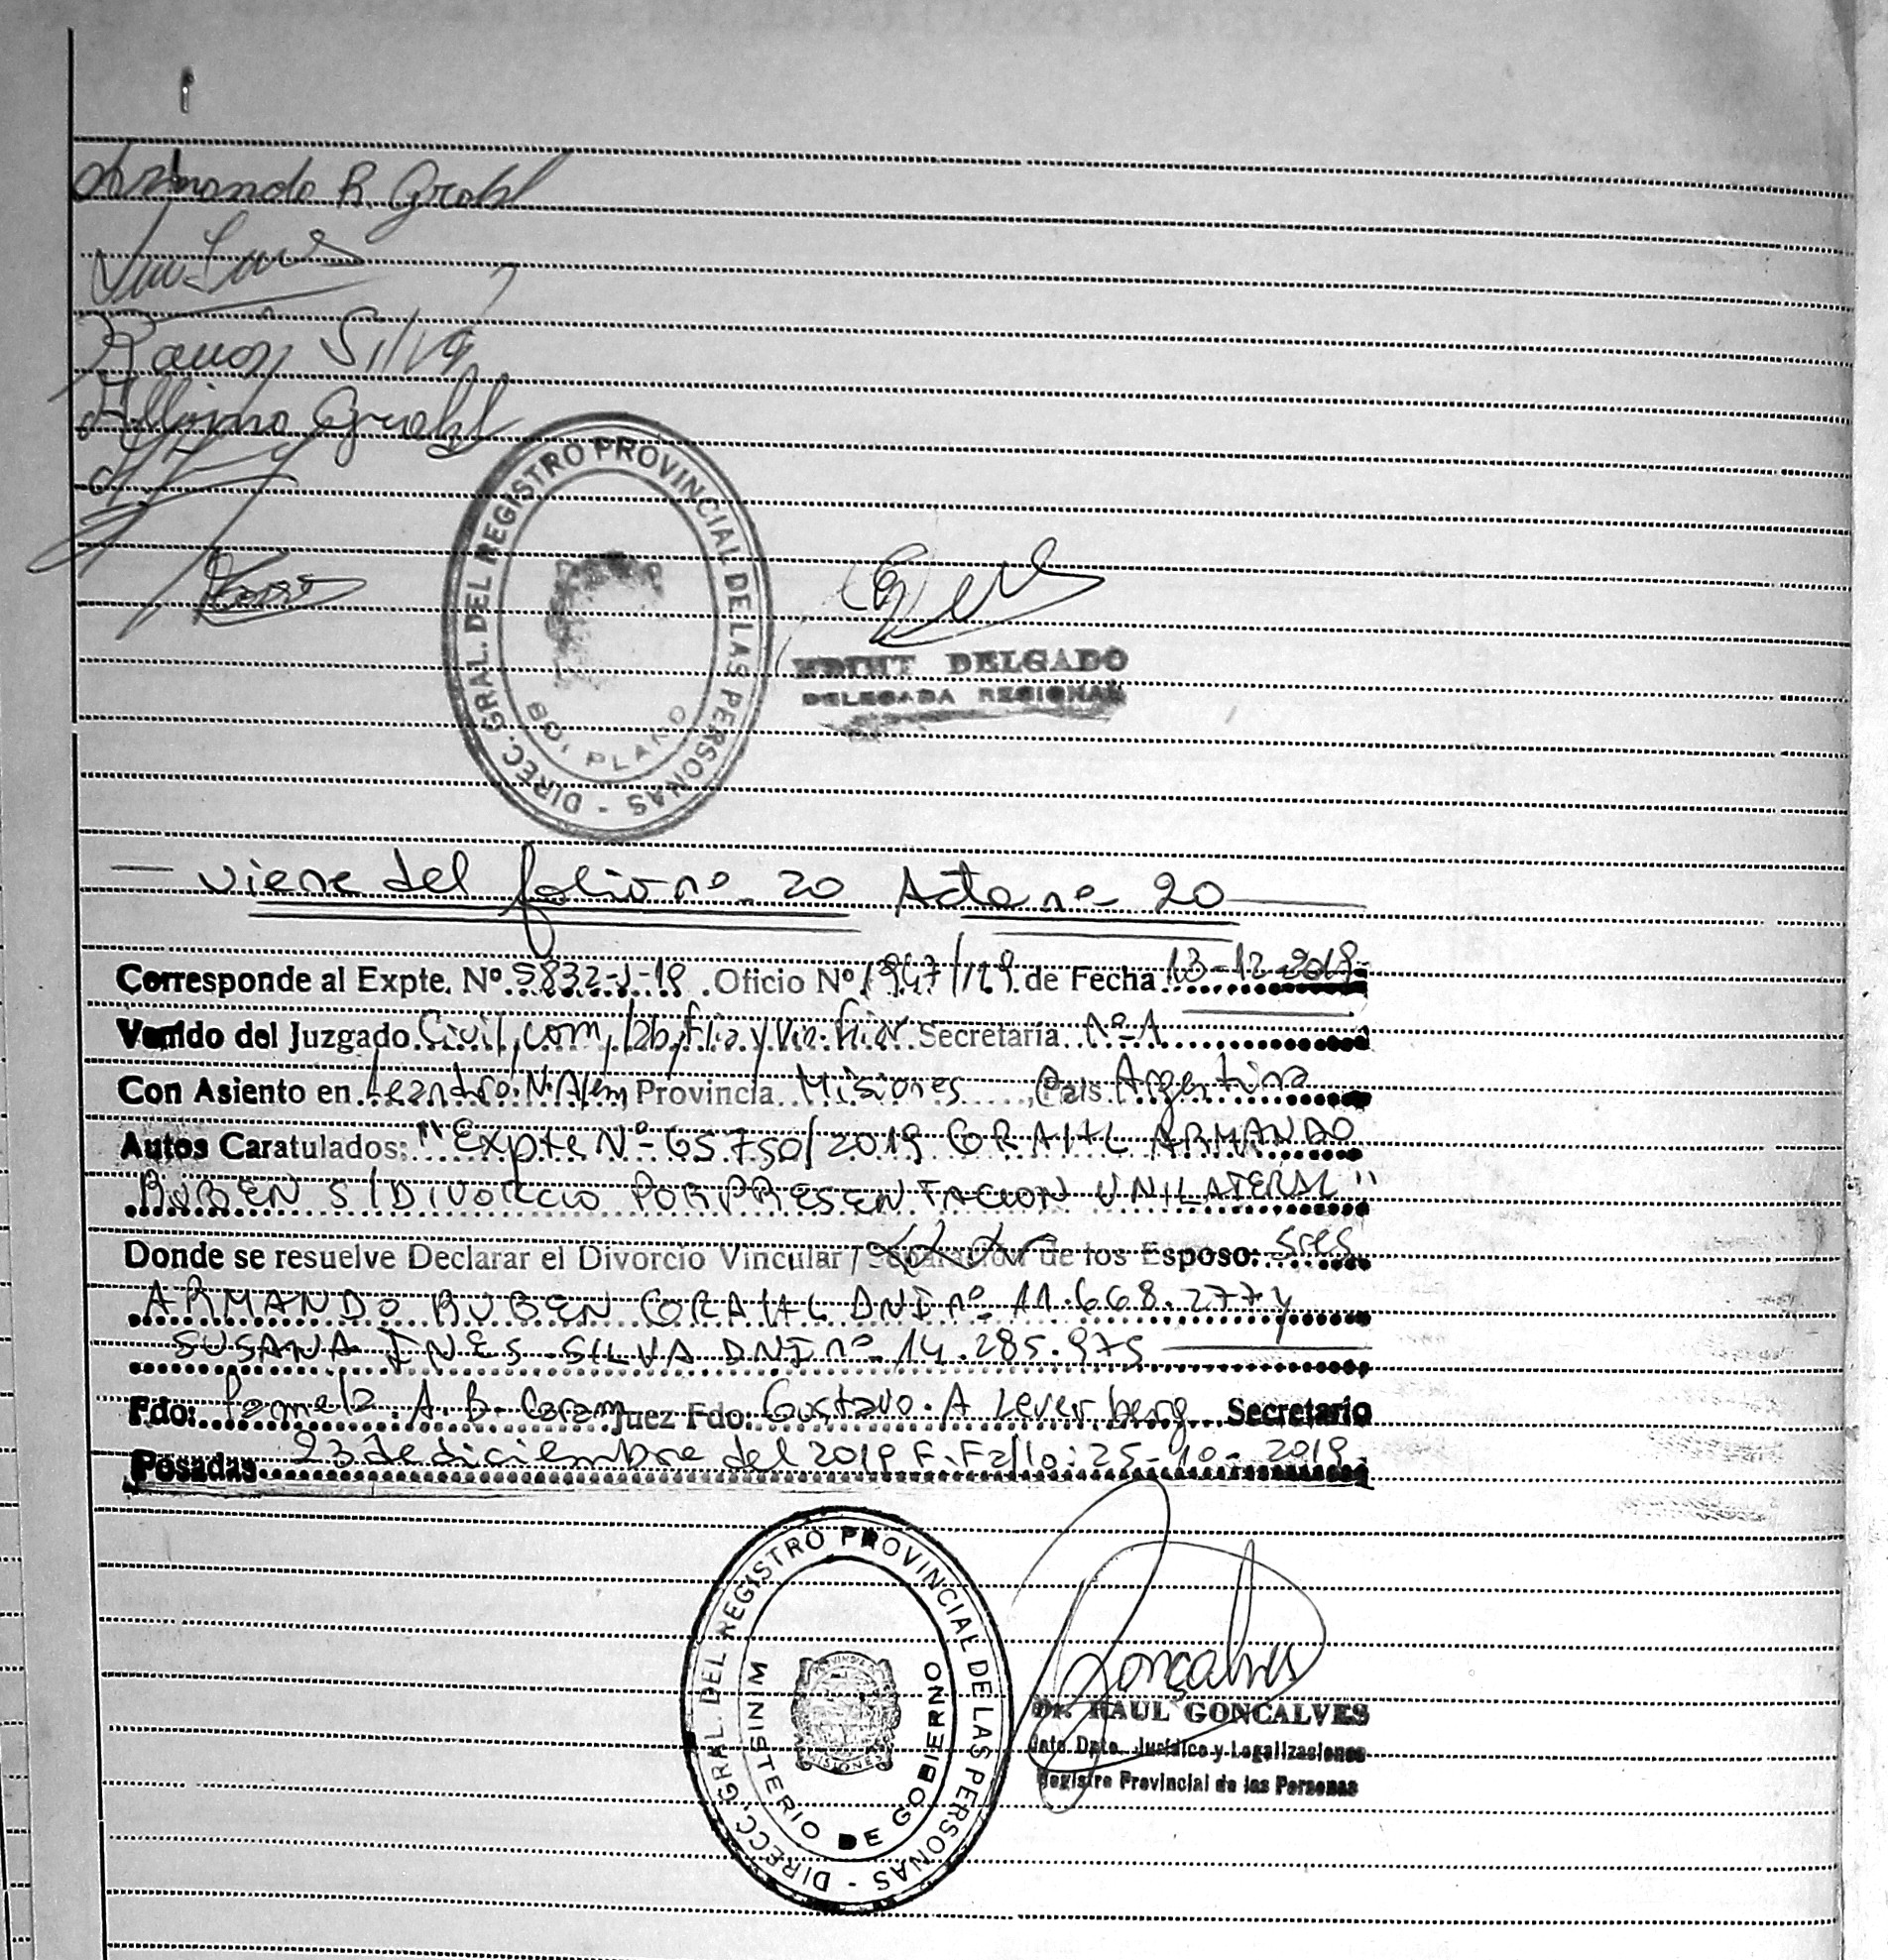 Armando R. Grahl
Ramón Silva
Albino Grahl
DIREC. GRAL. DEL REGISTRO PROVINCIAL DE LAS PERSONAS -
DELGADO
DELEGADA REGIONAL
— viene del folio nº 20 Acta nº 20 —
Corresponde al Expte. Nº 5832-J-19 Oficio Nº 1947/19 de Fecha 13-12-2019-
Venido del Juzgado Civil, com, lab, flia y Secretaría Nº 1
Con Asiento en Leandro N. Alem Provincia Misiones, País Argentina
Autos Caratulados: "Expte Nº 65750/2019 GRAHL ARMANDO
RUBEN S/DIVORCIO POR PRESENTACION UNILATERAL"
Donde se resuelve Declarar el Divorcio Vincular / de los Esposo: Sres
ARMANDO RUBEN GRAHL DNI nº 11.668.277 y
SUSANA INES SILVA DNI nº 14.285.975 —
Fdo: Pamela A. B. Juez Fdo: Gustavo A Secretario
Posadas 23 de diciembre del 2019 F. Fallo: 25-10-2019.
DIRECC. GRAL. DEL REGISTRO PROVINCIAL DE LAS PERSONAS -
MINISTERIO DE GOBIERNO
Gonçalves
Dr. RAUL GONCALVES
Jefe Dpto. Jurídico y Legalizaciones
Registro Provincial de las Personas